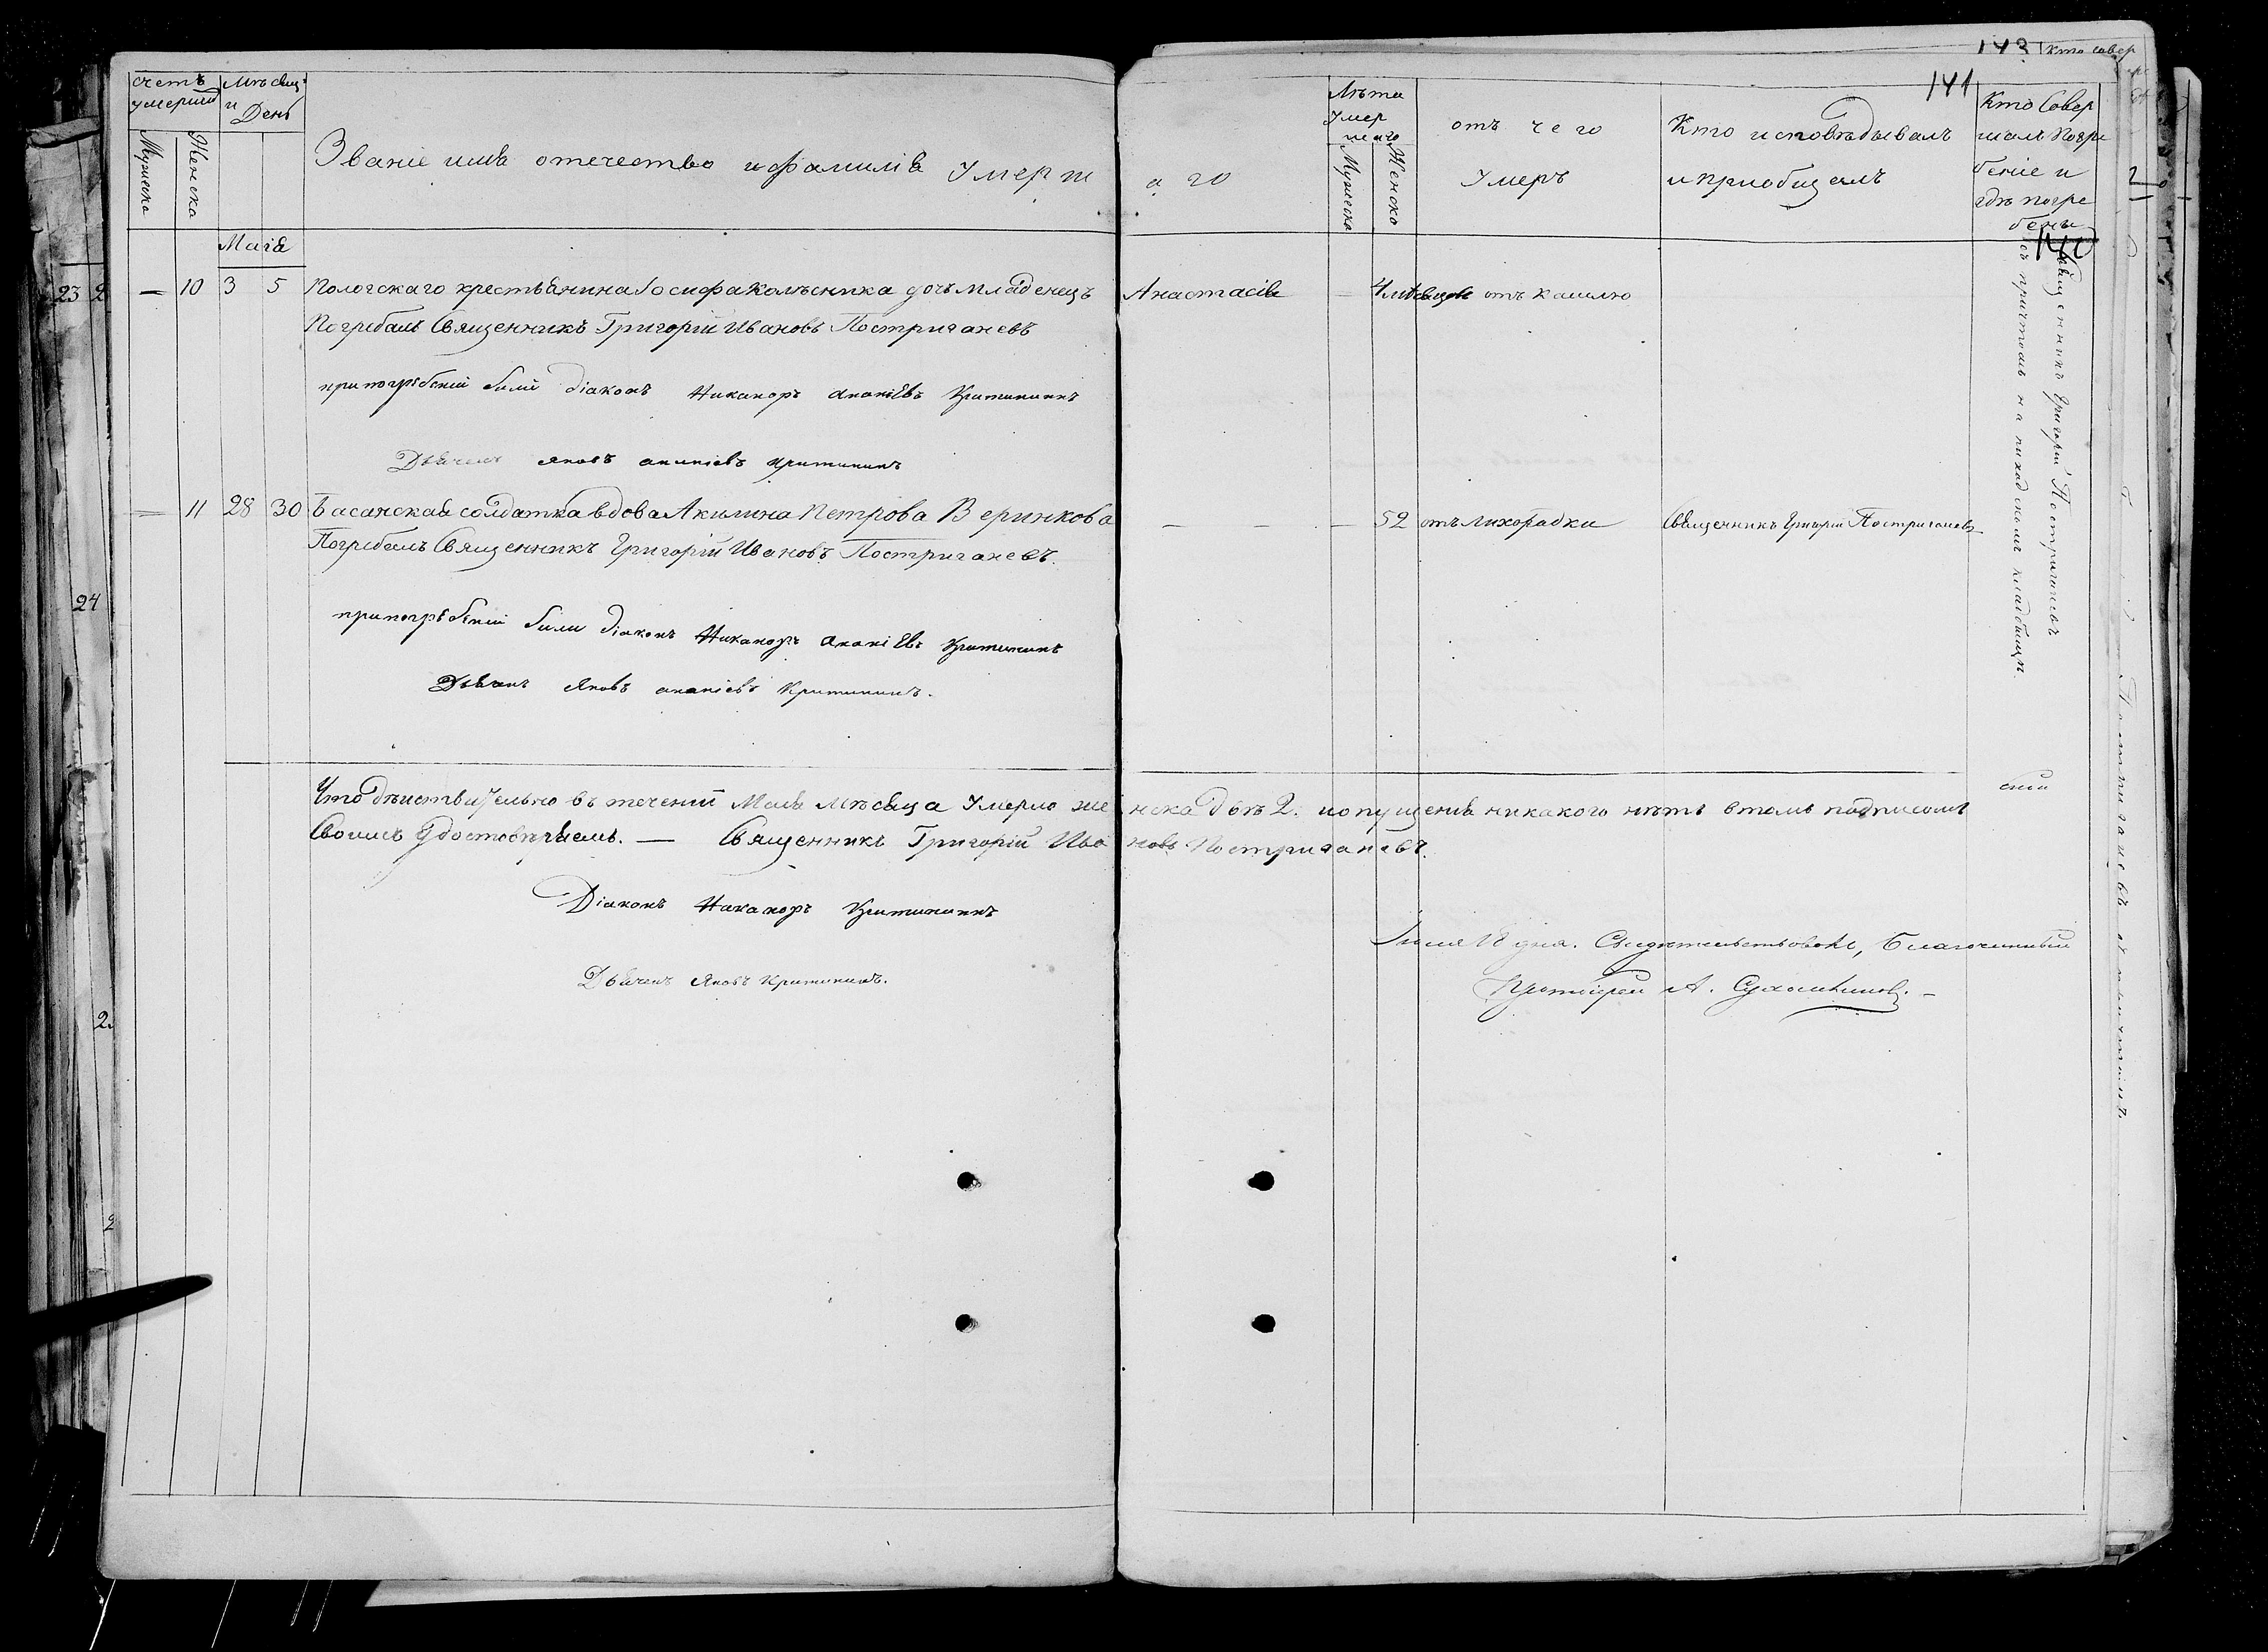 счетъ умершъ
Мѣсяцъ и День
Мужеска
Женска
Званіе имя отечество и фамилія Умерш
аго
Лѣта Умершаго
Мужеска
Женско
отъ чего Умеръ
Кто исповѣдывалъ и приобщалъ
Кто Совершалъ Погребеніе и гдѣ погребены
141
143
кто совер
140
Маія
— 10 3 5 Пологскаго крестьянина Іосифа Колѣсника дочь младенецъ Анастасія — 4 мѣсяцов отъ кашлю
Погребалъ Священникъ Григорій Ивановъ Постриганевъ
при погрѣбеніи были Діаконъ Никаноръ ананіЕвъ Критининъ
Дьячекъ Яковъ ананіевъ Критининъ
— 11 28 30 Басанская солдатка вдова Акилина Петрова Веринкова — — — 52 отъ лихорадки Священникъ Григорій Постриганевъ
Погребалъ Священникъ Григорій Ивановъ Постриганевъ.
при погрѣбеніи были Діаконъ Никаноръ ананіЕвъ Критининъ
Дьячекъ Яковъ ананіевъ Критининъ.
Священникъ Григорій Постриганевъ
съ причтомъ на приходскомъ кладбищѣ.
Что дѣиствительно въ теченіи Маія мѣсяца Умерло женска двѣ 2. и опущенія никакого нѣтъ втомъ подписомъ
Своимъ Удостовѣряемъ. — Священникъ Григорій Ивановъ Постриганевъ.
Діаконъ Никаноръ Критининъ
Дьячекъ Яковъ Критининъ.
18 дня. Свидѣтельствовалъ, Благочинный
Протоіерей А. Сухомлиновъ. —
23
24